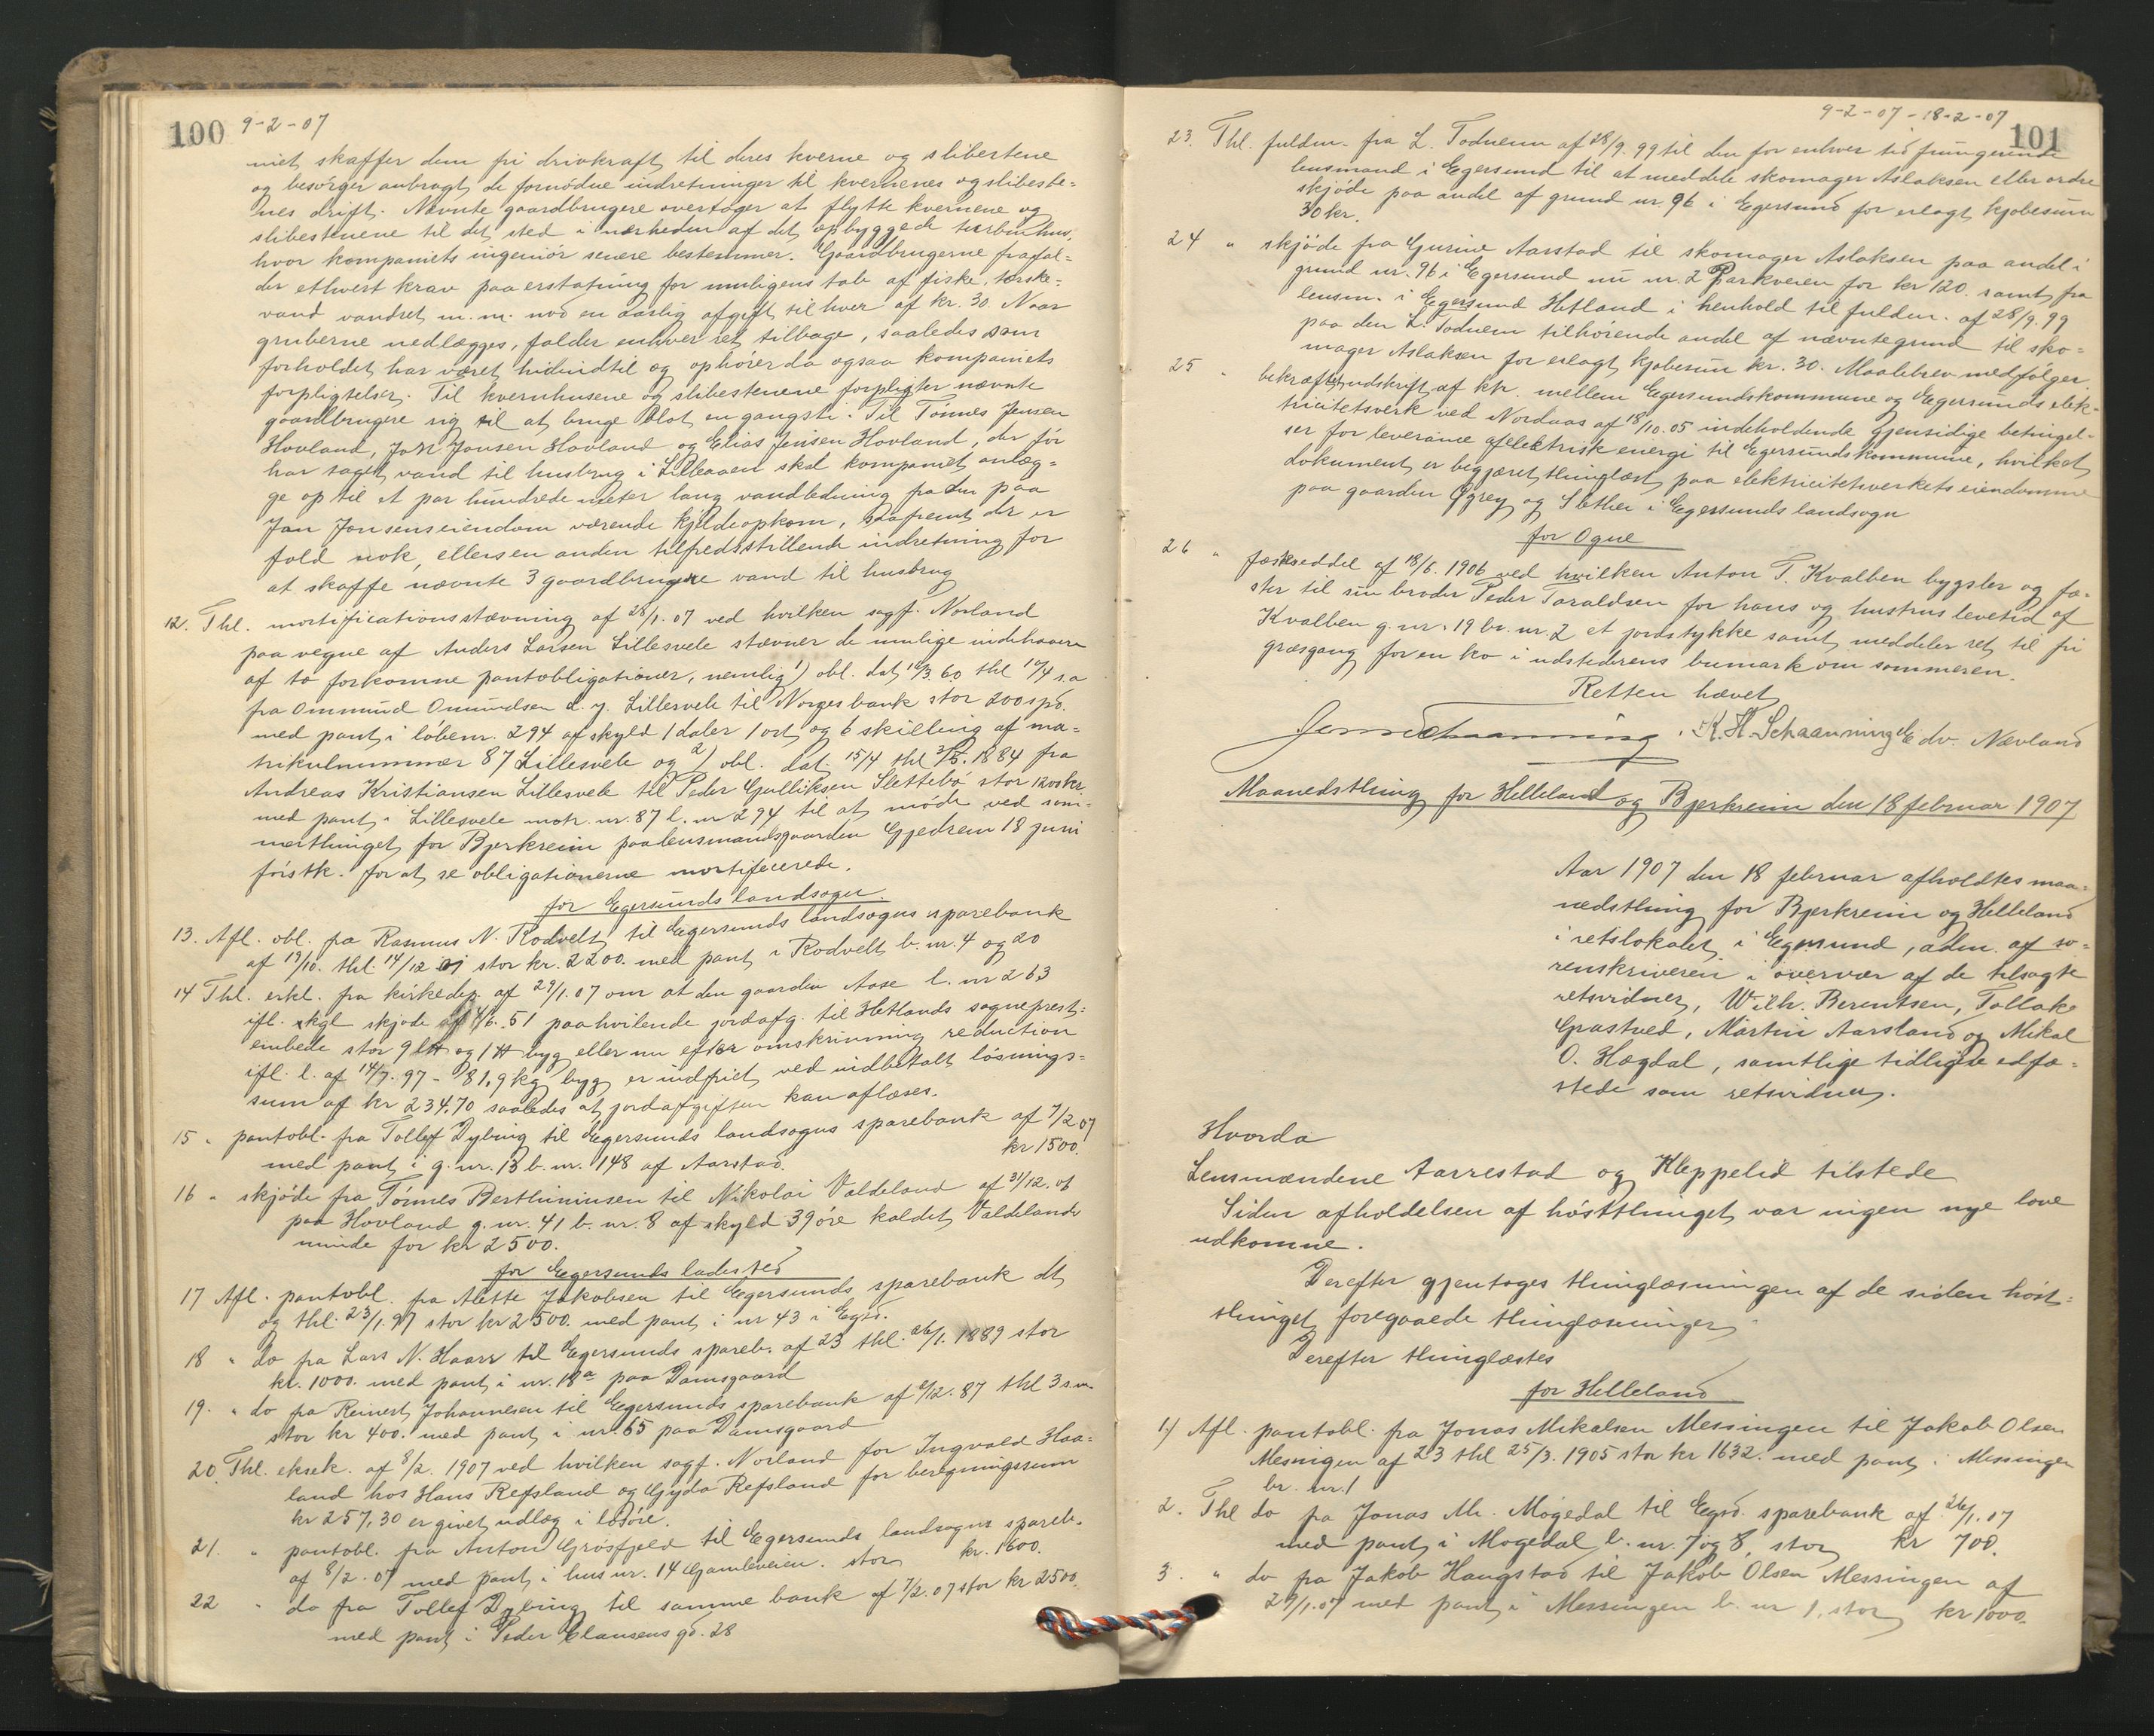 100 9-2-07
niet skaffer dem fri drivkraft til deres kverne og slibestene
og besörger anbragt de fornödne indretninger til kvernenes og slibeste=
nes drift. Nævnte gaardbrugere overtager at flytte kvernene og
slibestenene til det sted i nærheden af det opbyggede turbinhus,
hvor kompaniets ingeniör senere bestemmer. Gaardbrugerne frafal=
der ethvert krav paa erstatning for muligens tab af fiske, törske=
vand vandret m.m. mod en aarlig afgift til hver af kr. 30. Naar
gruberne nedlægges, falder enhver ret tilbage, saaledes som
forholdet har været hidindtil og ophörer da ogsaa kompaniets
forpligtelser. Til kvernhusene og slibestenene forpligter nævnte
gaardbrugere sig til at bruge blot en gangsti. Til Tönnes Jensen
Hovland, Jan Jonsen Hovland og Elias Jensen Hovland, der för
har taget vand til husbrug i Lilleaaen skal kompaniet anlæg=
ge op til et par hundrede meter lang vandledning fra den paa
Jan Jonsens eiendom værende kjildeopkom, saafremt der er
fald nok, eller en anden tilfredsstillende indretning for
at skaffe nævnte 3 gaardbrugere vand til husbrug
12. Thl. mortificationsstævning af 28/1. 07 ved hvilken sagf. Norland
paa vegne af Anders Larsen Lillesvele stævner de mulige indehavere
af to forkomne pantobligationer, nemlig 1) obl. dat 16/3 60 thl 14/4 s.a
fra Ommund Omundsen d.y. Lillesvele til Norges bank stor 200 spd.
med pant i löbenr. 294 af skyld 1 daler 1 ort og 6 skilling af ma=
trikulnummer 87 Lillesvele og 2) obl. dat. 15/4 thl 3/5. 1884 fra
Andreas Kristiansen Lillesvele til Peder Gulliksen Slettebö stor 1200 kr.
med pant i Lillesvele matr. nr. 87 l. nr 294 til at möde ved som=
merthinget for Bjerkreim paa lensmandsgaarden Gjedrem 18 juni
förstk. for at se obligationerne mortificerede.
for Egersunds landsogn
13. Afl. obl. fra Rasmus N. Rodvelt til Egersunds landsogns sparebank
af 19/10. thl. 14/12 01 stor kr. 2200. med pant i Rodvelt b. nr. 4 og 20
14 Thl. erkl. fra kirkedep. af 29/1. 07 om at den gaarden Aase l. nr 263
ifl. kgl skjöde af 4/6. 51 paahvilende jordafg. til Hetlands sogneprest=
embede stor 9 ltt og 1 tt byg eller nu efter omskrivning reduction
ifl. l. af 14/7. 97 - 81,9 kg byg er indfriet ved indbetalt lösnings=
sum af kr 234.70 saaledes at jordafgiften kan aflæses.
15 " pantobl. fra Tollef Dybing til Egersunds landsogns sparebank af 7/2 07
med pant i g. nr. 13 b. nr. 148 af Aarstad. kr 1500.
16 " skjöde fra Tönnes Berthiniusen til Nikolai Valdeland af 31/12. 06
paa Hovland g. nr. 41 b. nr. 8 af skyld 39 öre kaldet Valdelands
minde for kr 2500.
for Egersunds ladested
17 Afl. pantobl. fra Alette Jakobsen til Egersunds sparebank dt
og thl. 23/1. 97 stor kr 2500. med pant i nr 43 i Egsd.
18 " do fra Lars N. Haarr til Egersunds spareb. af 23 thl. 26/1. 1889 stor
kr. 1000. med pant i nr. 18a paa Damsgaard
19. " do fra Reinert Johannesen til Egersunds sparebank af 6/12. 87 thl 3 s.m.
stor kr 400. med pant i nr. 65 paa Damsgaard
20. Thl. eksek. af 8/2. 1907 ved hvilken sagf. Norland for Ingvald Haa=
land hos Hans Refsland og Gyda Refsland for beregningssum
kr 257,30 er givet udlæg i lösöre.
21. " pantobl. fra Anton Grösfjeld til Egersunds landsogns spareb.
af 8/2. 07 med pant i hus nr. 14 Gamleveien. stor kr. 1600.
22 " do fra Tollef Dybing til samme bank af 7/2. 07 stor kr 2500.
med pant i Peder Clausens gd. 28
9-2-07 - 18-2-07
101
23. Thl. fuldm. fra L. Toduem af 28/9. 99 til den for enhver tid fungerende
lensmand i Egersund til at meddele skomager Aslaksen eller ordre
skjöde paa andel af grund nr. 96 i Egersund for erlagt kjöbesum
30 kr.
24 " skjöde fra Gurine Aarstad til skomager Aslaksen paa andel i
grund nr. 96 i Egersund nu nr. 2 Parkveien for kr 120. samt fra
lensm. i Egersund Hetland i henhold til fuldm. af 28/9. 99
paa den L. Toduem tilhörende andel af nævnte grund til sko=
mager Aslaksen for erlagt kjöbesum kr. 30. Maalebrev medfölger.
25 " bekræftet udskrift af kpr. mellem Egersunds kommune og Egersunds elek=
tricitetsverk ved Nordaas af 18/10. 05 indeholdende gjensidige betingel=
ser for leverance af elektrisk energi til Egersunds kommune, hvilket
dokument er begjæret thinglæst paa elektricitetsverkets eiendomme
paa gaarden Øgrey og Slethei i Egersunds landsogn
for Ogne
26 " fæsteseddel af 18/6. 1906 ved hvilken Anton T. Kvalben bygsler og fæ=
ster til sin broder Peder Taraldsen for hans og hustrus levetid af
Kvalben g. nr. 19 br. nr. 2 et jordstykke samt meddeler ret til fri
græsgang for en ko i udstederens bumark om sommeren.
Retten hævet
Schaanning. K. H. Schaanning Edv. Nævland
Maanedsthing for Helleland og Bjerkreim den 18 februar 1907
Aar 1907 den 18 februar afholdtes maa=
nedsthing for Bjerkreim og Helleland
i retslokalet i Egersund, adm. af so=
renskriveren i overvær af de tilsagte
retsvidner, Wilh. Berentsen, Tollak
Grastved, Martin Aarsland og Mikal
O. Hægdal, samtlige tidligere edfæ=
stede som retsvidner.
Hvorda
Lensmændene Aarrestad og Kleppelid tilstede
Siden afholdelsen af höstthinget var ingen nye love
udkomne.
Derefter gjentoges thinglæsningen af de siden höst=
thinget foregaaede thinglæsninger
Derefter thinglæstes
for Helleland
1) Afl. pantobl. fra Jonas Mikalsen Messingen til Jakob Olsen
Messingen af 23 thl 25/3. 1905 stor kr 1632. med pant i Messingen
br. nr. 1
2. Thl do fra Jonas M. Mögedal til Egsd. sparebank af 26/1. 07
med pant i Mögedal b. nr. 7 og 8, stor kr 700.
3. " do fra Jakob Haugstad til Jakob Olsen Messingen af
29/1. 07 med pant i Messingen b. nr 1, stor kr 1000.